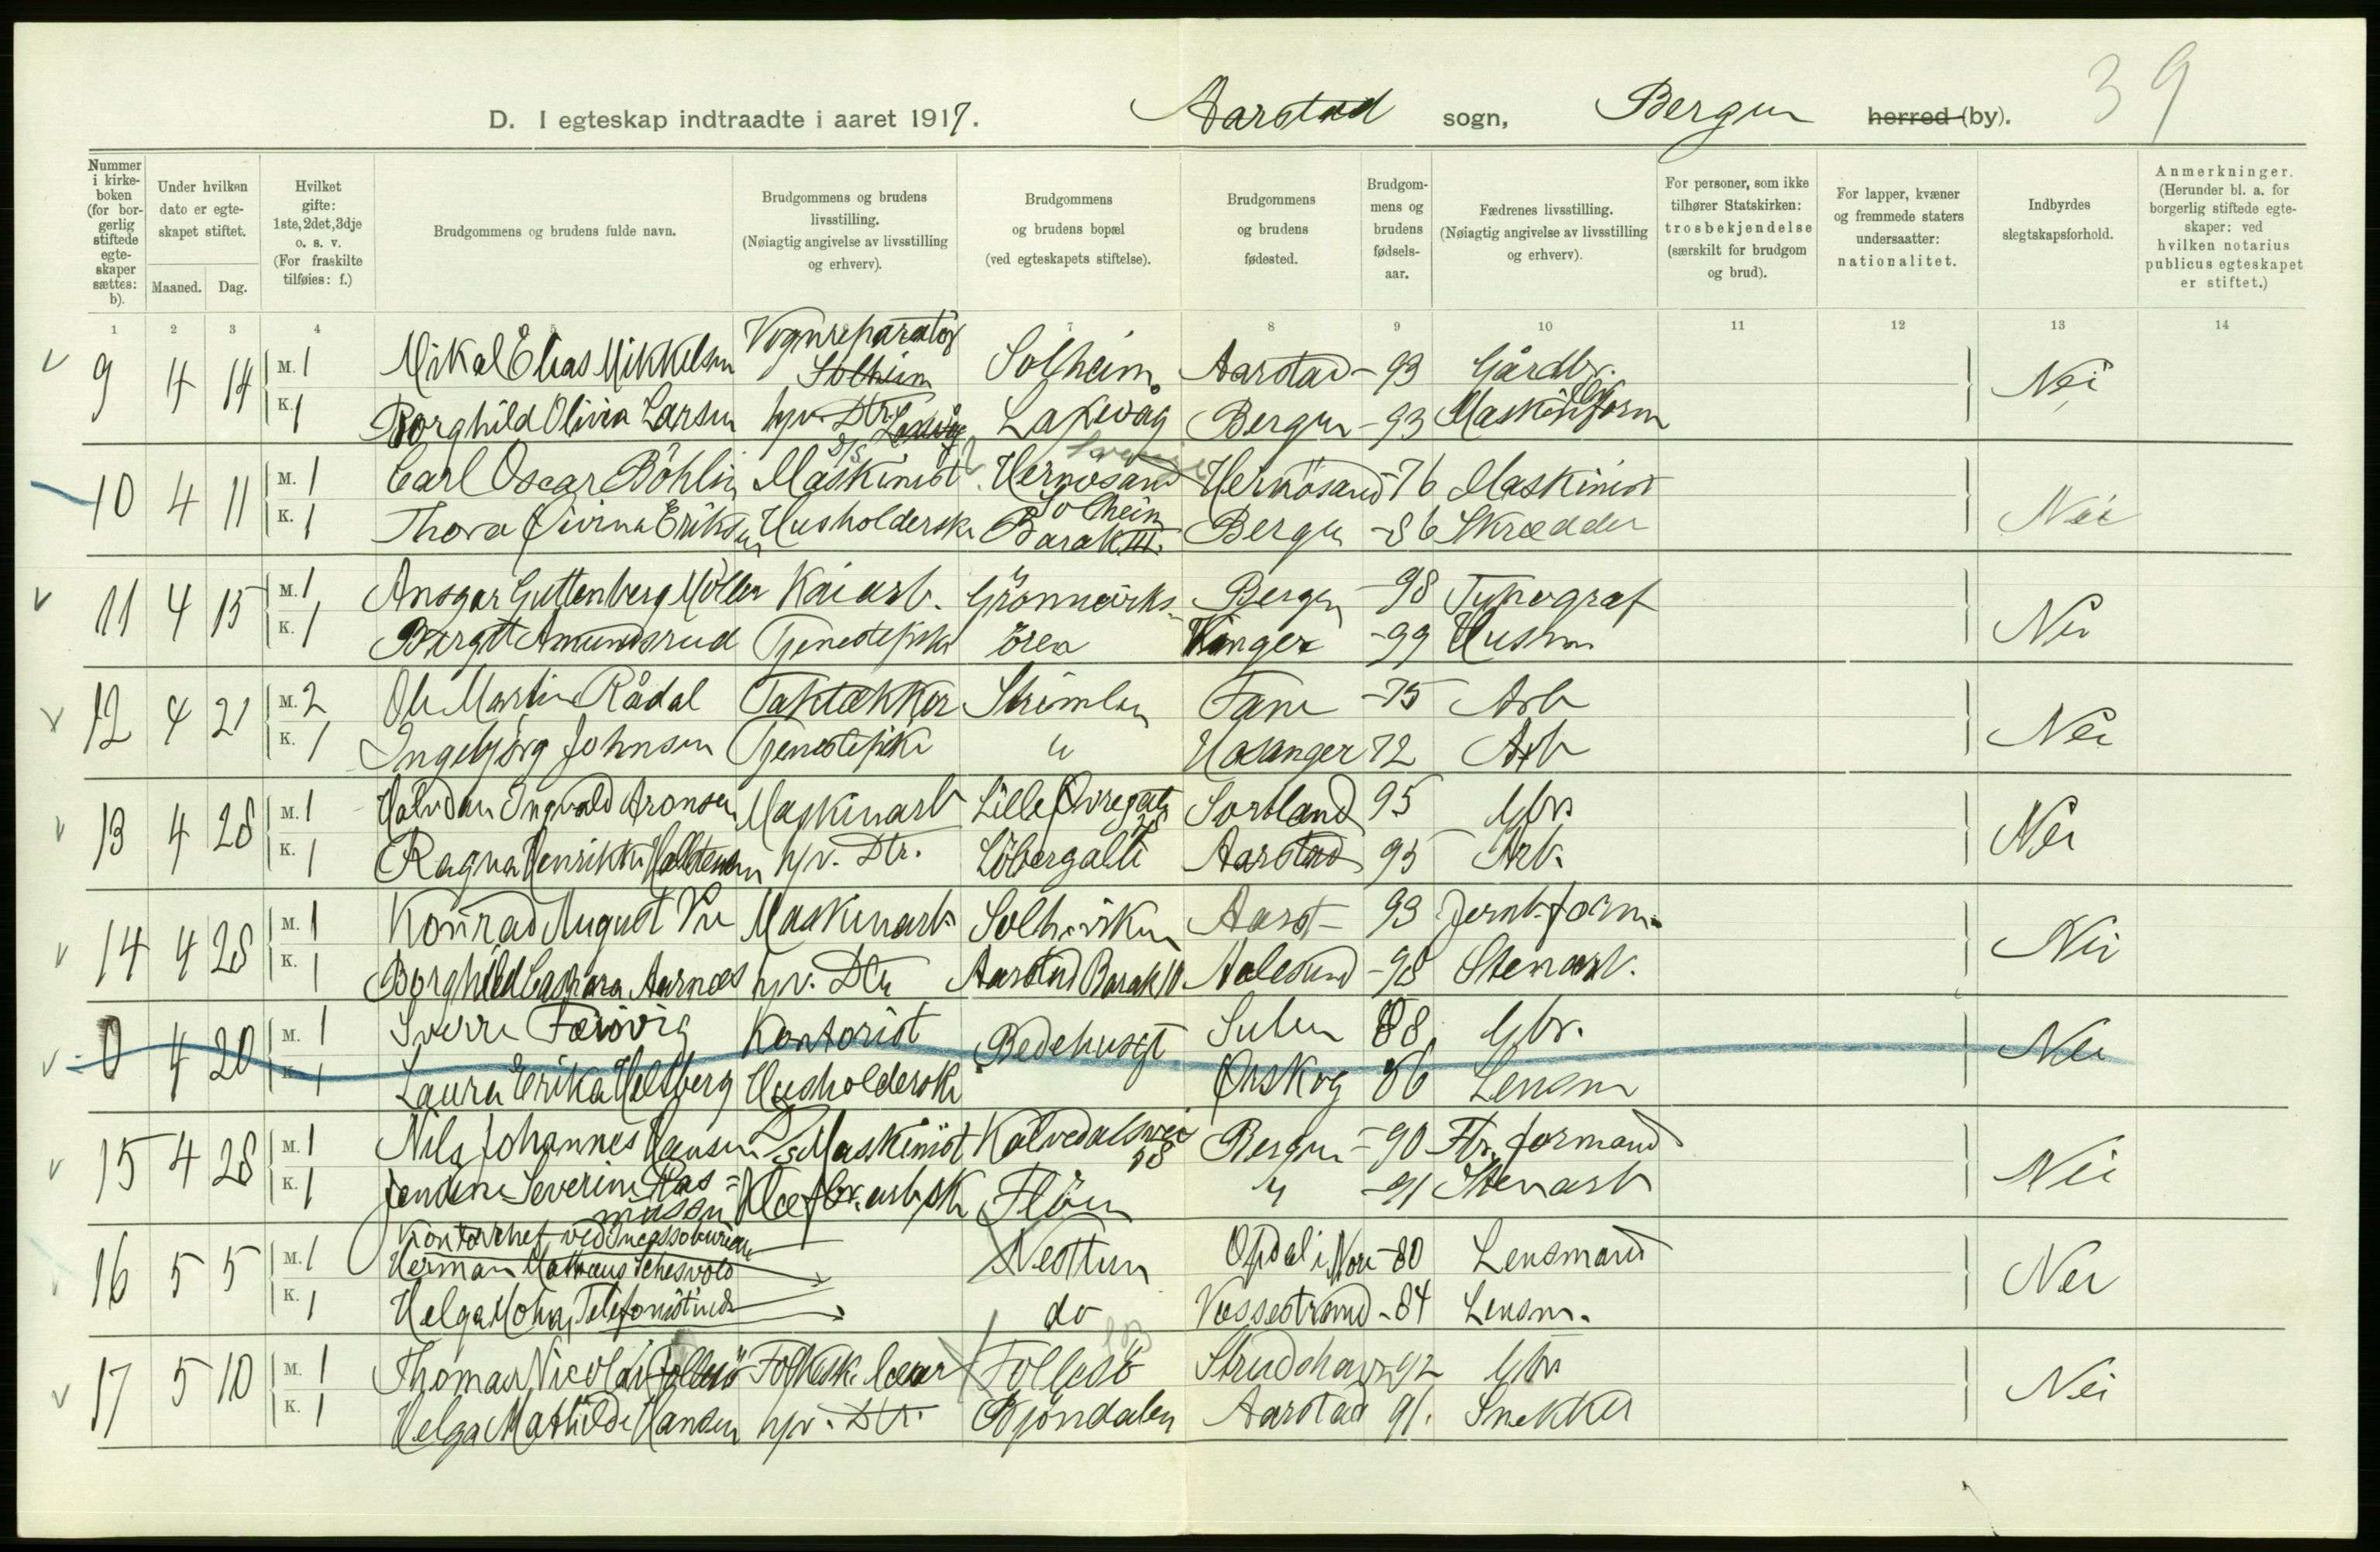 39
D. I egteskap indtraadte i aaret 1917. Aarstad sogn, Bergen herred (by).
Nummer i kirkeboken (for borgerlig stiftede egteskaper sættes: b).
Under hvilken dato er egteskapet stiftet.
Maaned. Dag.
Hvilket gifte: 1ste, 2det, 3dje o. s. v. (For fraskilte tilføies: f.)
Brudgommens og brudens fulde navn.
Brudgommens og brudens livsstilling. (Nøiagtig angivelse av livsstilling og erhverv).
Brudgommens og brudens bopæl (ved egteskapets stiftelse).
Brudgommens og brudens fødested.
Brudgommens og brudens fødselsaar.
Fædrenes livsstilling. (Nøiagtig angivelse av livsstilling og erhverv).
For personer, som ikke tilhører Statskirken: trosbekjendelse (særskilt for brudgom og brud).
For lapper, kvæner og fremmede staters undersaatter: nationalitet.
Indbyrdes slegtskapsforhold.
Anmerkninger. (Herunder bl. a. for borgerlig stiftede egteskaper: ved hvilken notarius publicus egteskapet er stiftet.)
1 2 3 4 5 7 8 9 10 11 12 13 14
9 4 14 M. 1 Mikal Elias Mikkelsen Vognreparatør Solheim Solheim Aarstad - 93 Gårdbr. Nei
K. 1 Borghild Olivia Larsen hjv. Dtr. Laxevåg Bergen - 93 Maskinform
10 4 11 M. 1 Carl Oscar Böhlin Maskinist Hernösand Hernösand - 76 Maskinist Nei
K. 1 Thora Eriksen Husholderske Solheim Barak III. Bergen - 86 Skrædder
11 4 15 M. 1 Ansgar Guttenberg Möller Kaiarb. Grönneviks- Bergen - 98 Typograf Nei
K. 1 Bergit Amundsrud Tjenestepike ören - 99 Husm
12 4 21 M. 2 Ole Martin Rådal Taktækker Strimlen Fane - 75 Arb Nei
K. 1 Ingebjörg Johnsen Tjenestepike " Hosanger 72 Arb
13 4 28 M. 1 Halvdan Ingvald Aronsen Maskinarb Lille Øvregate 28 Sortland 95 Gbr. Nei
K. 1 Ragna Henrikke hjv. Dtr. Löbergalle Aarstad 95 Arb.
14 4 28 M. 1 Konrad August Vie Maskinarb Solheimsviken Aarst - 93 Jernb.form. Nei
K. 1 Borghild Caspara Aarnes hjv. Dtr Aarstad Barak 10. Aalesund - 98 Stenarb.
0 4 20 M. 1 Sverre Færövig Kontorist Bedehusgt Sulen 88 Gbr. Nei
K. 1 Laura Erika Heltberg Husholderske Ørskog 86 Lensm
15 4 28 M. 1 Nils Johannes Hansen D/S Maskinist Kalvedalsvei 18 Bergen - 90 Fbr. formand Nei
K. 1 Severine Ras=mussen Klæfbr. arbsk Flöen " - 91 Stenarb
Kontorchef ved Incassobureau
16 5 5 M. 1 Herman Mathæus Nesttun Opdal i Nore - 80 Lensmand Nei
K. 1 Helga Telefonistinde do Vossestrand - 84 Lensm.
17 5 10 M. 1 Thomas Nicolai Follesö Folkesk. lærer Follesö Strudshavn 92 Gbr Nei
K. 1 Helga Mathilde Hansen hjv. Dtr. Bjöndalen Aarstad 91. Snekker